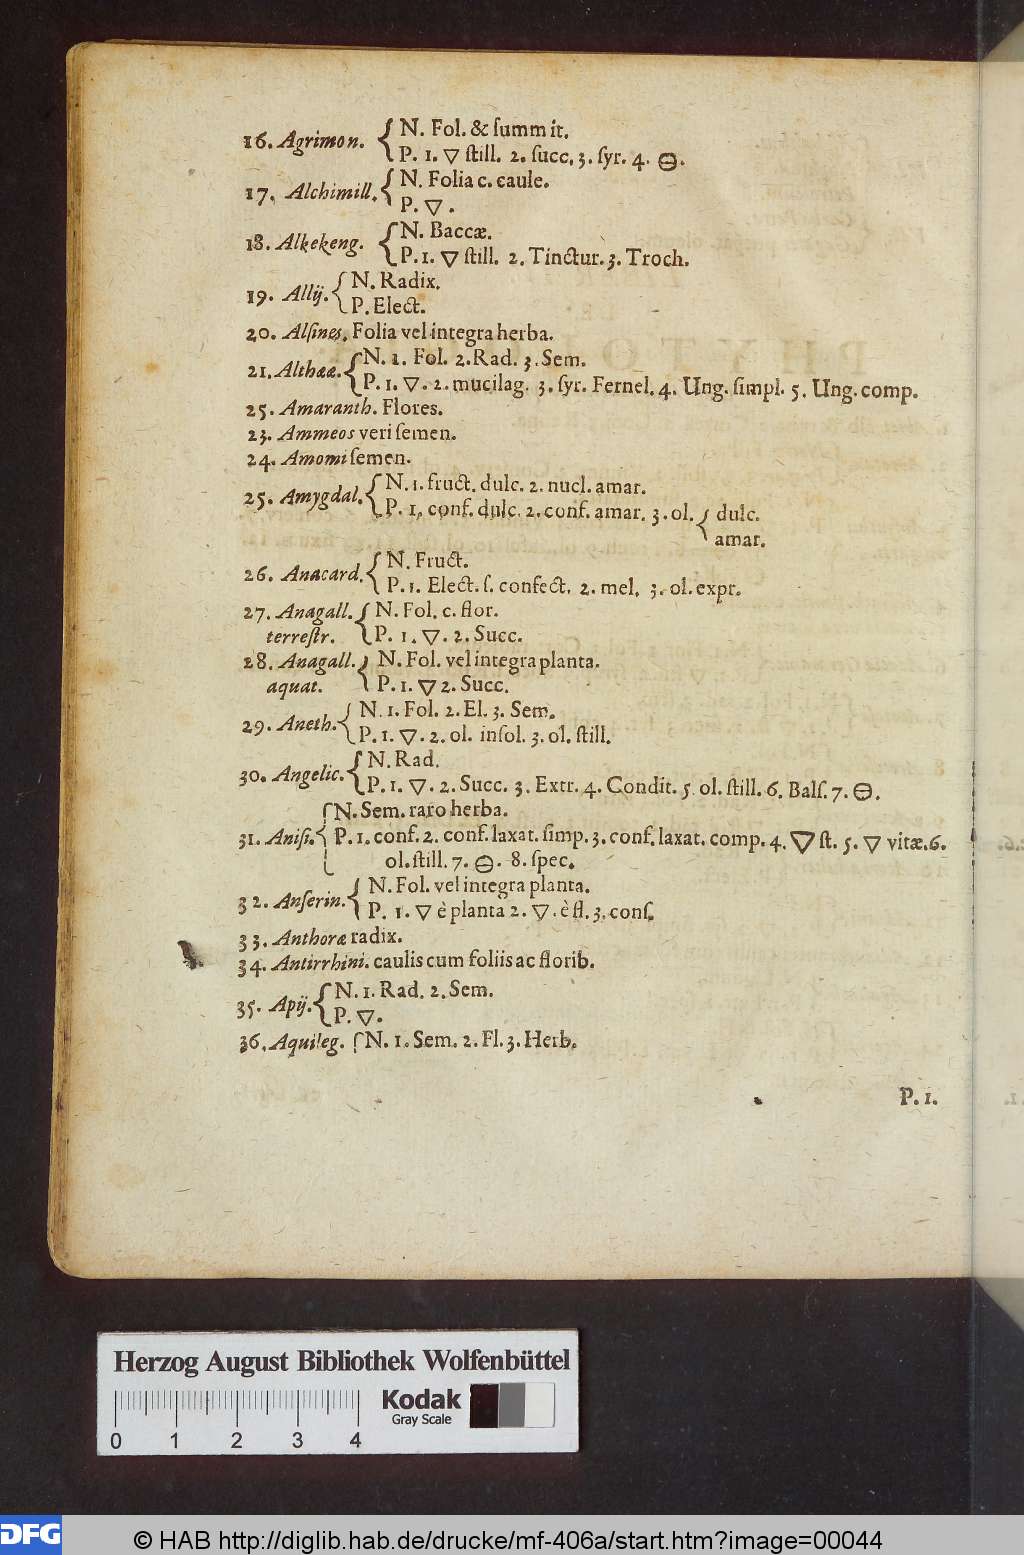 N. Fol. & ſummit.
16. Agrimon.
P. 1. ▽ ſtill. 2. ſucc. 3. ſyr. 4. ⊖.
N. Folia c. caule.
17. Alchimill.
P. ▽.
N. Baccæ.
18. Alkekeng.
P. 1. ▽ ſtill. 2. Tinctur. 3. Troch.
N. Radix.
19. Allij.
P. Elect.
20. Alſines. Folia vel integra herba.
N. 1. Fol. 2. Rad. 3. Sem.
21. Althææ.
P. 1. ▽. 2. mucilag. 3. ſyr. Fernel. 4. Ung. ſimpl. 5. Ung. comp.
25. Amaranth. Flores.
23. Ammeos veri ſemen.
24. Amomi ſemen.
N. 1. fruct. dulc. 2. nucl. amar.
25. Amygdal.
P. 1. conf. dulc. 2. conf. amar. 3. ol. dulc.
amar.
N. Fruct.
26. Anacard.
P. 1. Elect. ſ. confect. 2. mel. 3. ol. expr.
27. Anagall. N. Fol. c. flor.
terreſtr. P. 1. ▽. 2. Succ.
28. Anagall. N. Fol. vel integra planta.
aquat. P. 1. ▽ 2. Succ.
N. 1. Fol. 2. El. 3. Sem.
29. Aneth.
P. 1. ▽. 2. ol. inſol. 3. ol. ſtill.
N. Rad.
30. Angelic.
P. 1. ▽. 2. Succ. 3. Extr. 4. Condit. 5. ol. ſtill. 6. Balſ. 7. ⊖.
N. Sem. raro herba.
31. Aniſi. P. 1. conf. 2. conf. laxat. ſimp. 3. conf. laxat. comp. 4. ▽ ſt. 5. ▽ vitæ. 6.
ol. ſtill. 7. ⊖. 8. ſpec.
N. Fol. vel integra planta.
32. Anſerin.
P. 1. ▽ è planta 2. ▽. è fl. 3. conſ.
33. Anthoræ radix.
34. Antirrhini. caulis cum foliis ac florib.
N. 1. Rad. 2. Sem.
35. Apij.
P. ▽.
36. Aquileg. N. 1. Sem. 2. Fl. 3. Herb.
P. 1.
Herzog August Bibliothek Wolfenbüttel
Kodak
Gray Scale
0 1 2 3 4
DFG
© HAB http://diglib.hab.de/drucke/mf-406a/start.htm?image=00044